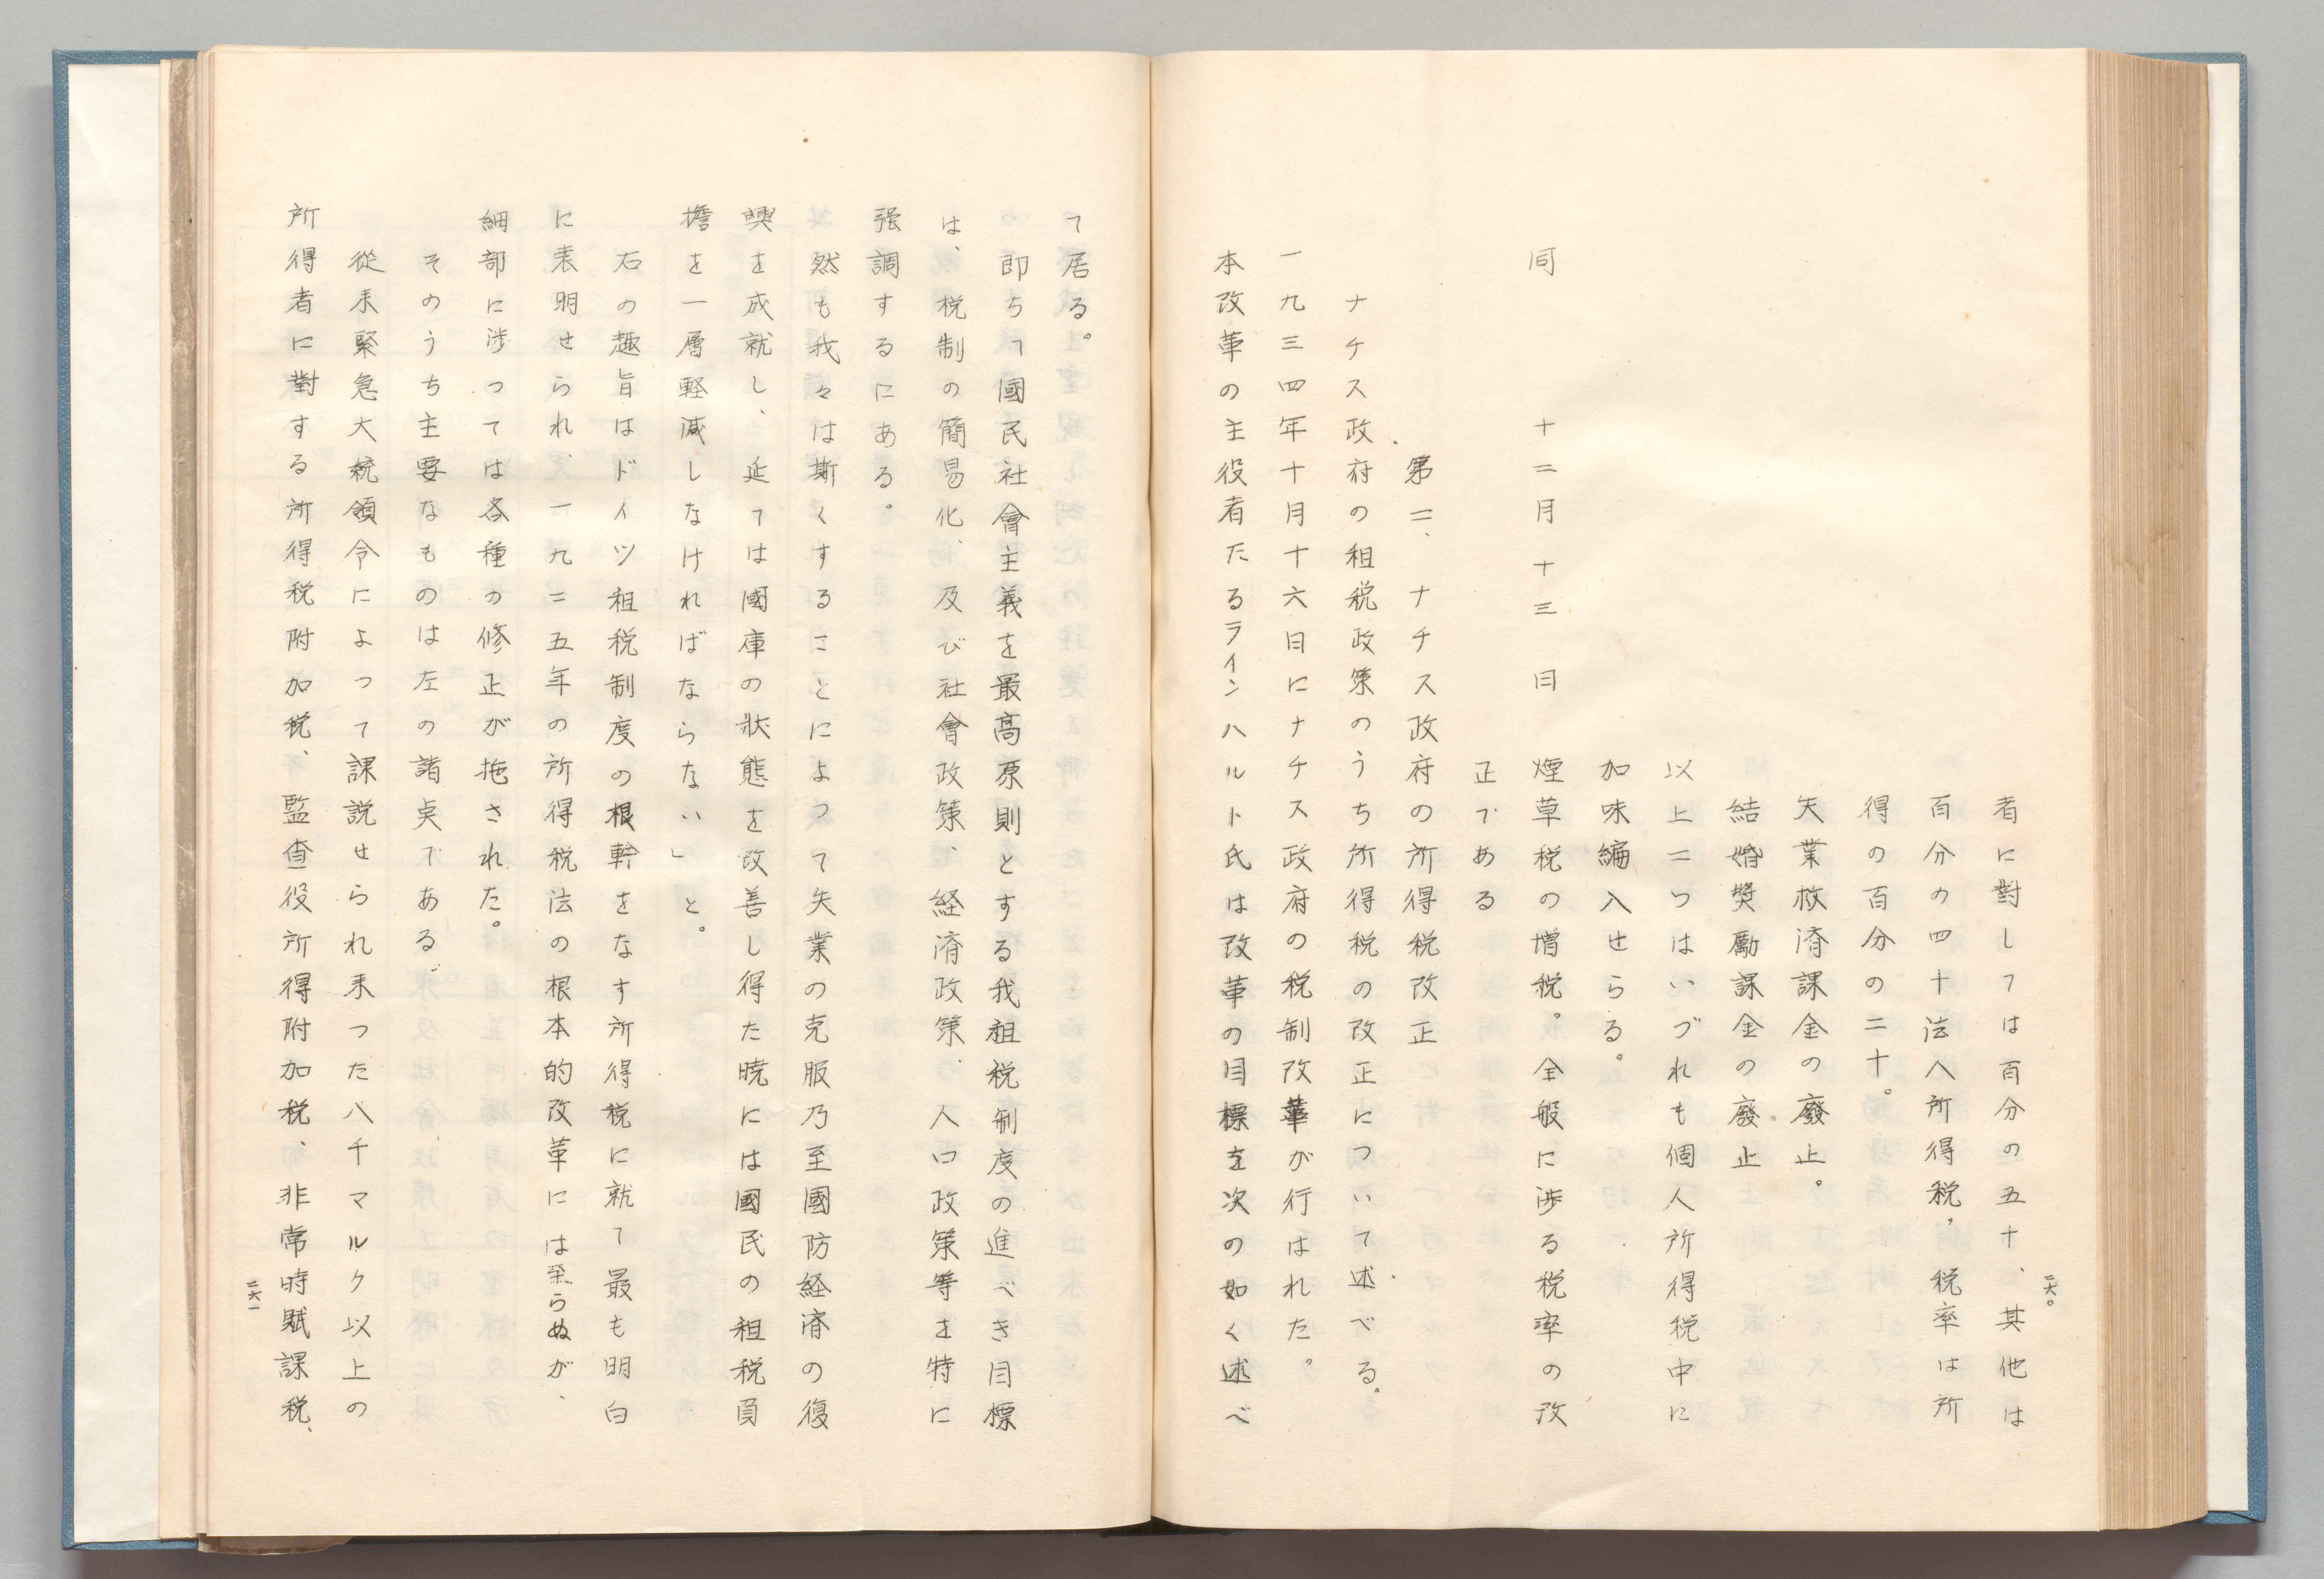 者に對しては百分の五十、其他は
百分の四十法人所得税、税率は所
得の百分の二十。
失業救済課金の廢止。
結婚奨勵課金の廢止
以上二つはいづれも個人所得税中に
加味編入せらる。
同 十二月十三日 煙草税の増税。全般に渉る税率の改
正である
第二、ナチス政府の所得税改正
ナチス政府の租税政策のうち所得税の改正について述べる。
一九三四年十月十六日にナチス政府の税制改革が行はれた。
本改革の主役者たるラインハルト氏は改革の目標を次の如く述べ
二六〇
て居る。
即ちて國民社會主義を最高原則とする我租税制度の進べき目標
は、税制の簡易化、及び社會政策、経済政策、人口政策等を特に
張調するにある。
然も我々は斯くすることによつて失業の克服乃至國防経済の復
興を成就し、延ては國庫の狀態を改善し得た暁には國民の租税負
擔を一層軽減しなければならない」と。
右の趣旨はドイツ租税制度の根幹をなす所得税に就て最も明白
に表明せられ、一九二五年の所得税法の根本的改革には至らぬが、
細部に渉つては各種の修正が拖された。
そのうち主要なものは左の諸点である。
從来緊急大統領令によつて課説せられ来つた八千マルク以上の
所得者に對する所得税附加税、監査役所得附加税、非常時賦課税、
二六一